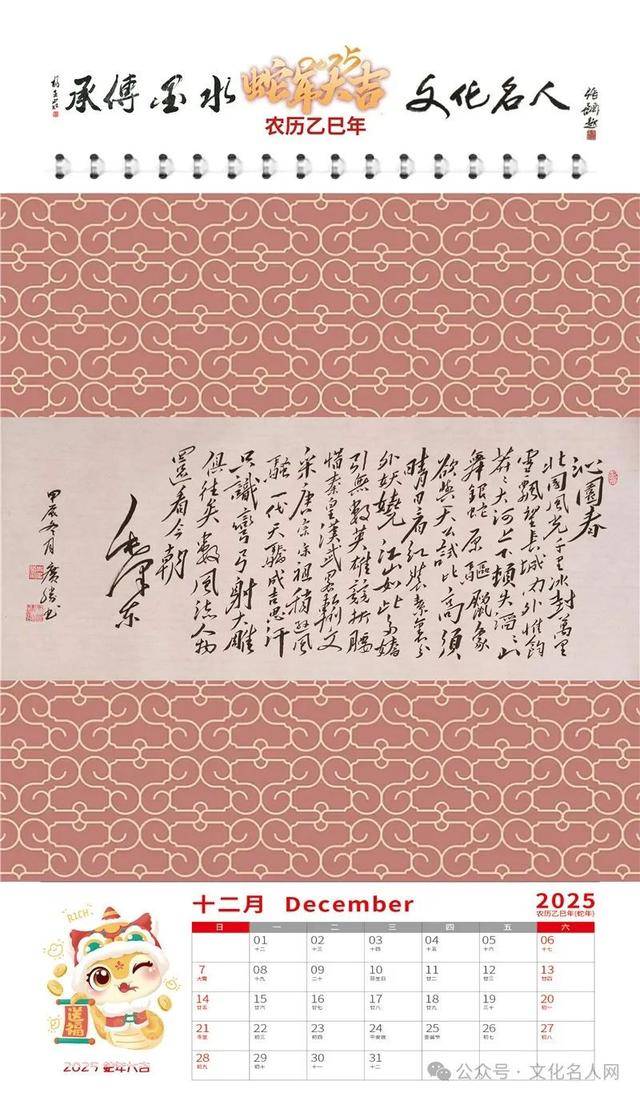 承傳墨水
2025
蛇年大吉
文化名人
农历乙巳年
沁園春
北國風光千里冰封萬里
雪飄望長城内外惟餘
莽々大河上下頓失滔々山
舞銀蛇原驅臘象
欲與天公試比高須
晴日看紅裝素裹分
外妖嬈江山如此多嬌
引無數英雄競折腰
惜秦皇漢武畧輸文
采唐宗宋祖稍遜風
騷一代天驕成吉思汗
只識彎弓射大雕
俱往矣數風流人物
還看今朝
毛澤东
甲辰冬月
RICH
送福
2025 蛇年大吉
十二月 December 2025
农历乙巳年(蛇年)
日 一 二 三 四 五 六
01 02 03 04 05 06
十二 十三 十四 十五 十六 十七
7 08 09 10 11 12 13
大雪 十九 二十 廿二 廿三 廿四
14 15 16 17 18 19 20
廿五 廿六 廿七 廿八 廿九 三十 初一
21 22 23 24 25 26 27
冬至 初三 初四 平安夜 圣诞节 初七 初八
28 29 30 31
初九 初十 十一 十二
公众号·文化名人网